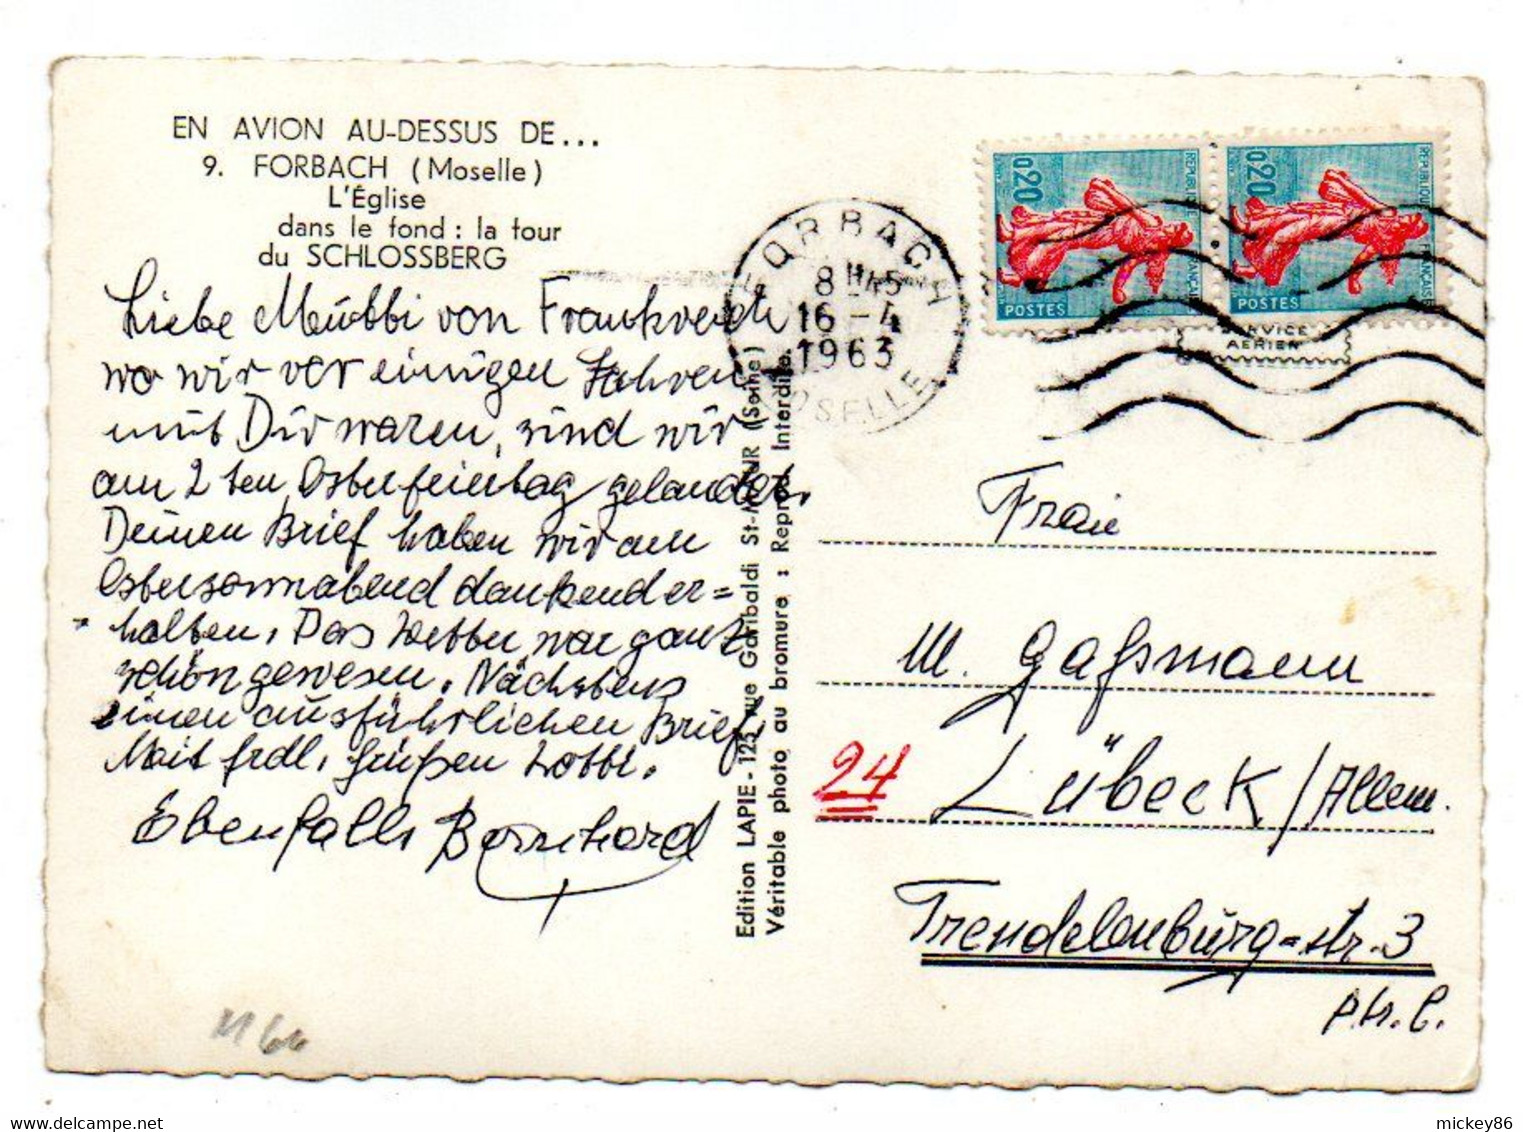 EN AVION AU-DESSUS DE...
9. FORBACH (Moselle)
L'Église
dans le fond : la tour
du SCHLOSSBERG
Liebe Mutti von Frankreich
wo wir vor einigen Jahren
mit Dir waren, sind wir
am 2ten Osterfeiertag gelandet.
Deinen Brief haben wir am
Ostersonnabend dankend er=
halten. Das Wetter war ganz
schön gewesen. Nächstens
einen ausführlichen Brief.
Mit frdl. Grüßen Lotti.
Ebenfalls Bernhard
Edition LAPIE - 125, rue Garibaldi St-MAUR (Seine)
Véritable photo au bromure : Repro. Interdite.
FORBACH
8 H 15
16 - 4
1963
MOSELLE
0,20
REPUBLIQUE FRANÇAISE
POSTES
0,20
REPUBLIQUE FRANÇAISE
POSTES
SERVICE
AÉRIEN
Frau
M. Gaßmann
24
Lübeck/Allem.
Trendelenburg=str.3